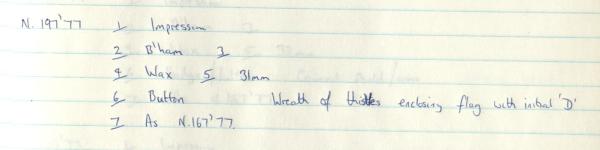 N. 197'77 1 Impression
2 B'ham 3
4 Wax 5 31mm
6 Button Wreath of thistles enclosing flag with initial 'D'
7 As N.167'77.